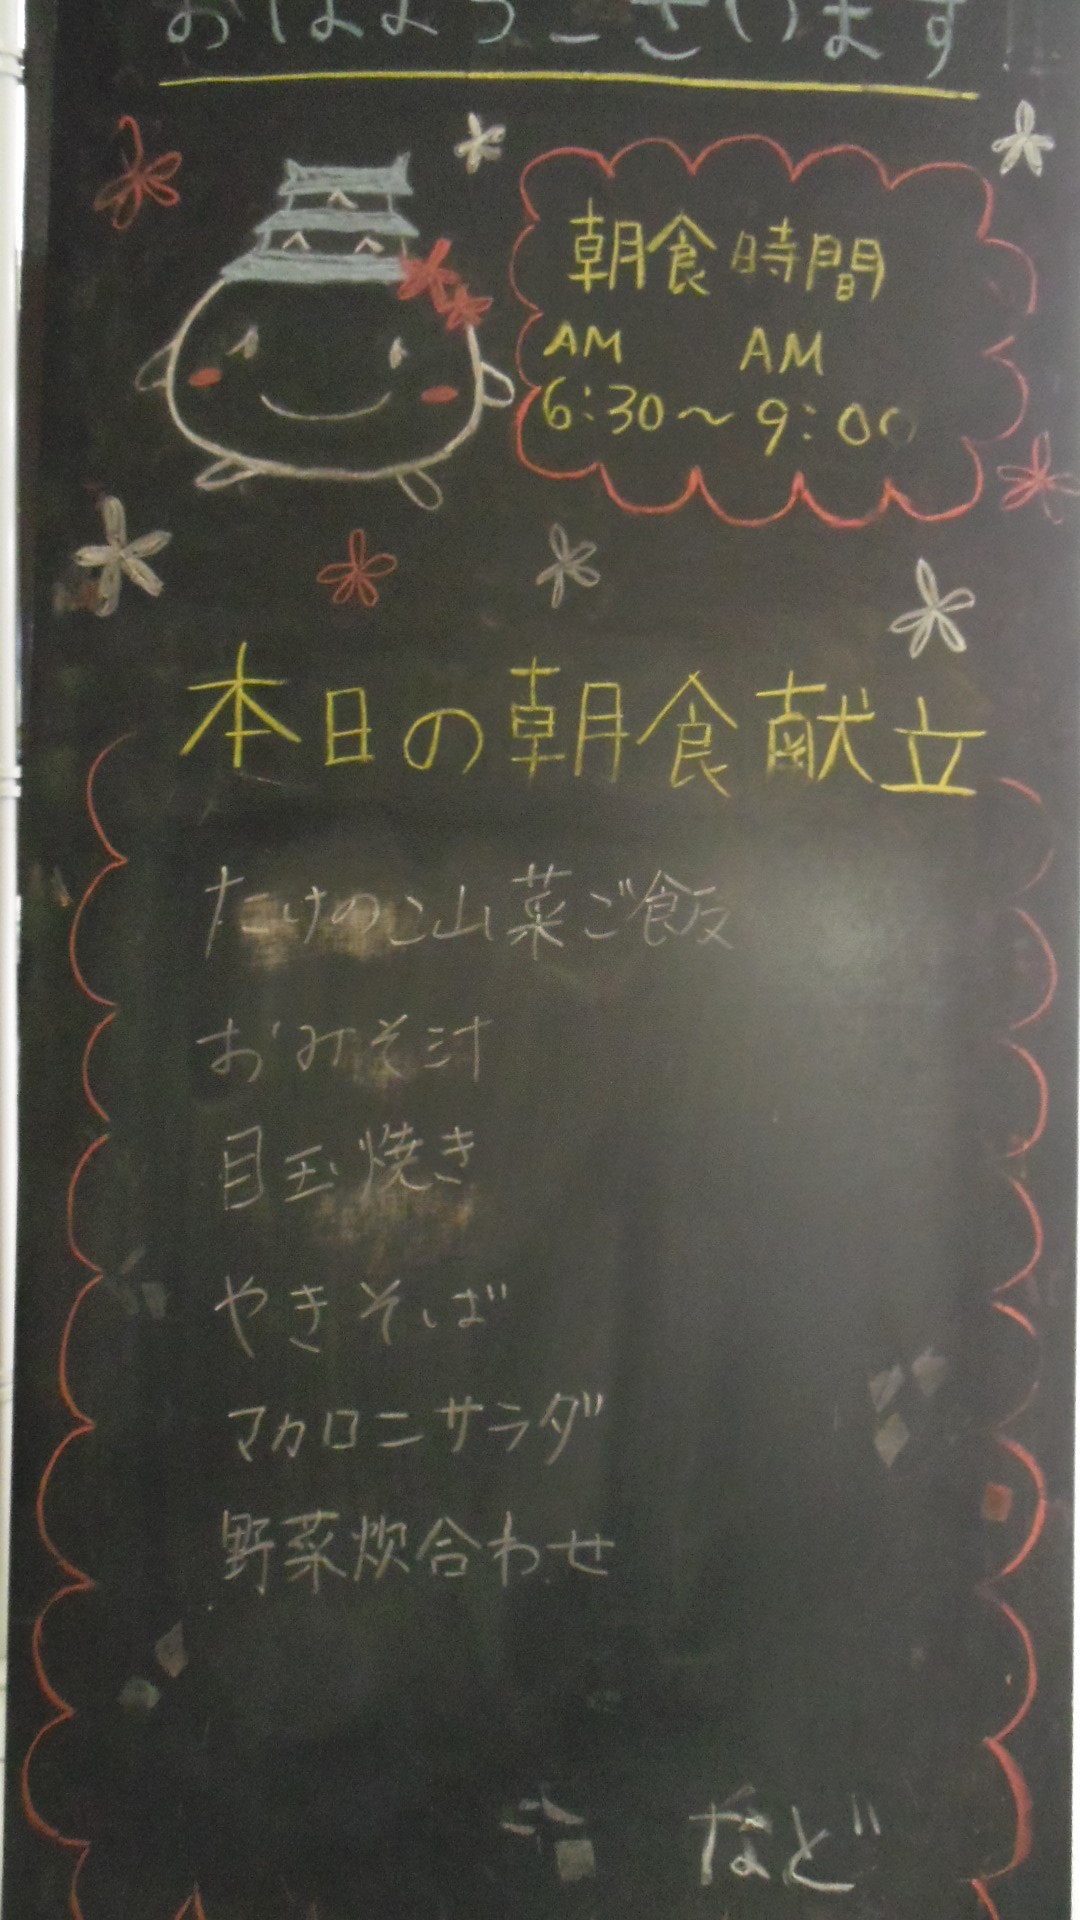 おはようございます
朝食時間
AM AM
6:30〜9:00
本日の朝食献立
たけのこ山菜ご飯
おみそ汁
目玉焼き
やきそば
マカロニサラダ
野菜炊合わせ
など